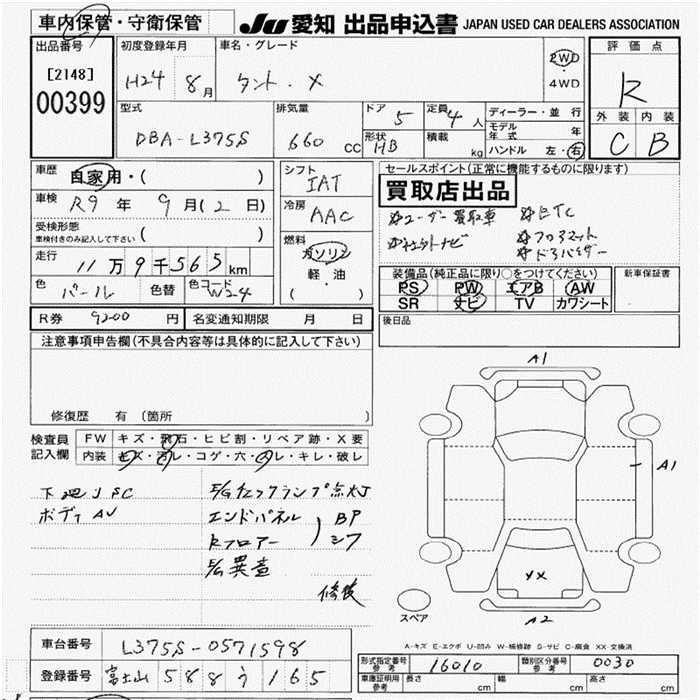 車内保管・守衛保管
JU 愛知 出品申込書 JAPAN USED CAR DEALERS ASSOCIATION
出品番号
[2148]
00399
初度登録年月
H24 8月
車名・グレード
タント・X
2WD
・
4WD
評価点
R
外装 内装
C B
型式
DBA-L375S
排気量
660 cc
ドア
5
定員
4人
形状
HB
積載
kg
ディーラー・並行
モデル年式 年
ハンドル 左・右
車歴
自家用・( )
車検
R9年 9月(2日)
受検形態
車検付きのみ記入して下さい ( )
走行
11万9千565km
色
パール
色替
色コード
W24
シフト
IAT
冷房
AAC
燃料
ガソリン
軽・油
( )
セールスポイント(正常に機能するものに限ります)
買取店出品
☆ユーザー買取車 ☆ETC
☆社外ナビ ☆フロアマット
☆ドアバイザー
装備品(純正品に限り○をつけてください)
PS PW エアB AW
SR ナビ TV カワシート
新車保証書
後日品
R券 9200円 名変通知期限 月 日
注意事項申告欄(不具合内容等は具体的に記入して下さい)
修復歴 有(箇所
検査員記入欄
FW キズ・飛石・ヒビ割・リペア跡・X要
内装 キズ・汚レ・コゲ・穴・スレ・キレ・破レ
下廻J SC
ボディAU
E/Gチェックランプ点灯
エンドパネル
Rフロアー
BP
シフ
E/G異音
修復
A1
A1
XX
A2
スペア
A-キズ E-エクボ U-凹み W-補修跡 S-サビ C-腐食 XX-交換済
車台番号 L375S-0571598
登録番号 富士山 588 う 165
形式指定番号 参考 16010
類別区分番号 参考 0030
車庫証明用 参考 長さ cm 幅 cm 高さ cm